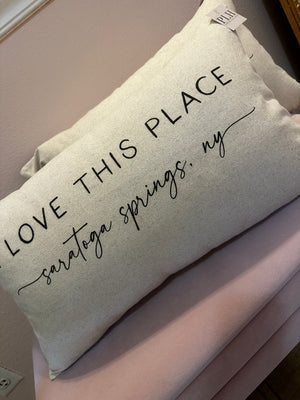 LOVE THIS PLACE
saratoga springs, ny